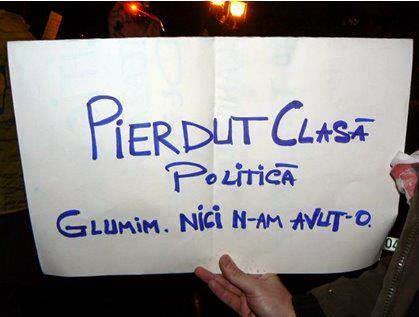 PIERDUT CLASĂ
POLITICĂ
GLUMIM. NICI N-AM AVUT-O.
04